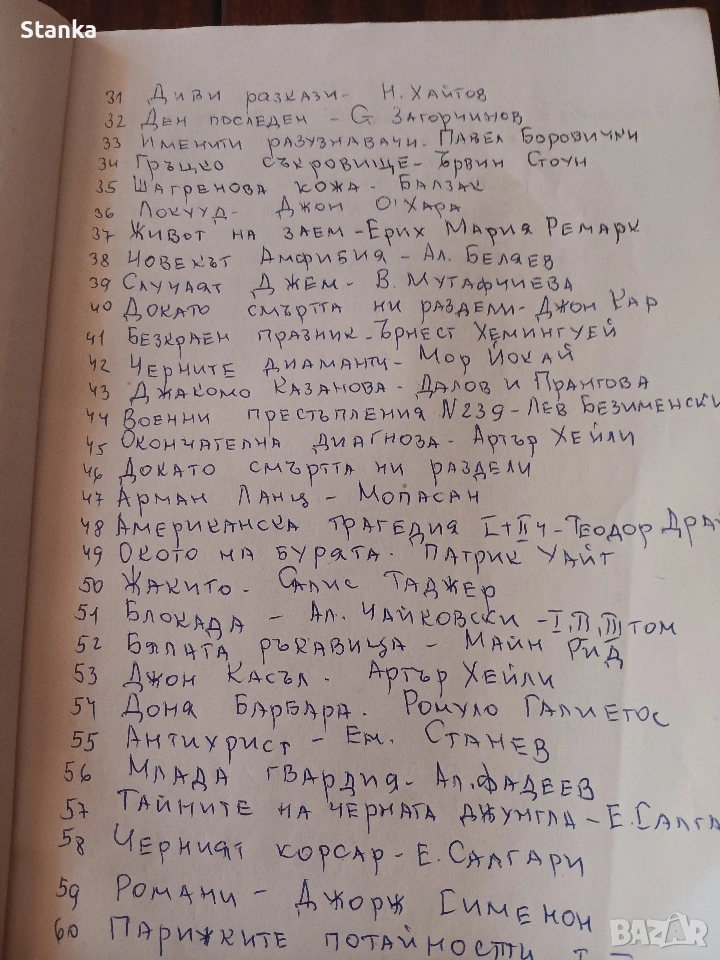 Stanka
31 Диви разкази - Н. Хайтов
32 Ден последен - Ст. Загорчинов
33 Именити разузнавачи - Павел Боровички
34 Гръцко съкровище - Ървин Стоун
35 Шагренова кожа - Балзак
36 Локууд - Джон О'Хара
37 Живот на заем - Ерих Мария Ремарк
38 Човекът Амфибия - Ал. Беляев
39 Случаят Джем - В. Мутафчиева
40 Докато смъртта ни раздели - Джон Кар
41 Безкраен празник - Ърнест Хемингуей
42 Черните диаманти - Мор Йокай
43 Джакомо Казанова - Далов и Прангова
44 Военни престъпления N239 - Лев Безименски
45 Окончателна диагноза - Артър Хейли
46 Докато смъртта ни раздели
47 Арман Ланц - Мопасан
48 Американска трагедия I+II ч - Теодор Дра
49 Окото на бурята - Патрик Уайт
50 Жакито - Салис Таджер
51 Блокада - Ал. Чайковски - I, II, III том
52 Бялата ръкавица - Майн Рид
53 Джон Касъл. Артър Хейли
54 Доня Барбара. Ромуло Галиегос
55 Антихрист - Ем. Станев
56 Млада гвардия - Ал. Фадеев
57 Тайните на черната джунгла - Е. Салга
58 Черният корсар - Е. Салгари
59 Романи - Джорж Сименон
60 Парижките потайности I
BAZAR